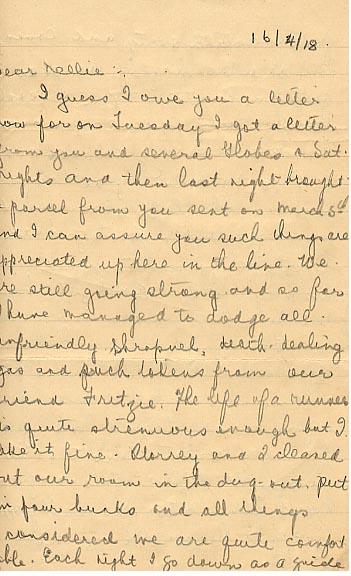 16/4/18.
ear Nellie :-
I guess I owe you a letter
ow for on Tuesday I got a letter
rom you and several Globes & Sat.
ights and then last night brought
parcel from you sent on March 5th
nd I can assure you such things are
ppreciated up here in the line. We
re still going strong and so far
have managed to dodge all
nfriendly shrapnel, death-dealing
gas and such tokens from our
riend Fritzie. The life of a runner
is quite strenuous enough but I
ake it fine. Morrey and I cleaned
ut our room in the dug-out, put
in four bunks and all things
considered we are quite comfort
ble. Each night I go down as a guide